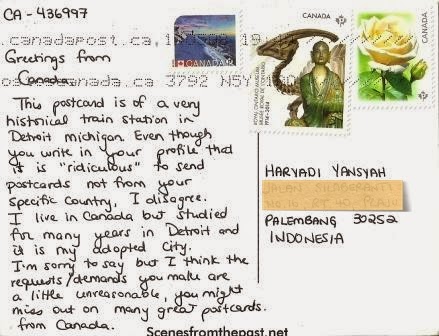 CA-436997
canadapost.ca,
CANADA
CANADA
CANADA
canada.ca 3792 N5Y
ROYAL ONTARIO MUSEUM
MUSÉE ROYAL DE L'ONTARIO
1914-2014
P
P
Greetings from
Canada
This postcard is of a very
historical train station in
Detroit michigan. Even though
you write in your profile that
it is "ridiculous" to send
postcards not from your
specific Country, I disagree.
I live in Canada but studied
for many years in Detroit and
it is my adopted City.
I'm sorry to say but I think the
requests/demands you make are
a little unreasonable, you might
miss out on many great postcards
from Canada.
HARYADI YANSYAH
PALEMBANG 30252
INDONESIA
Scenesfromthepast.net